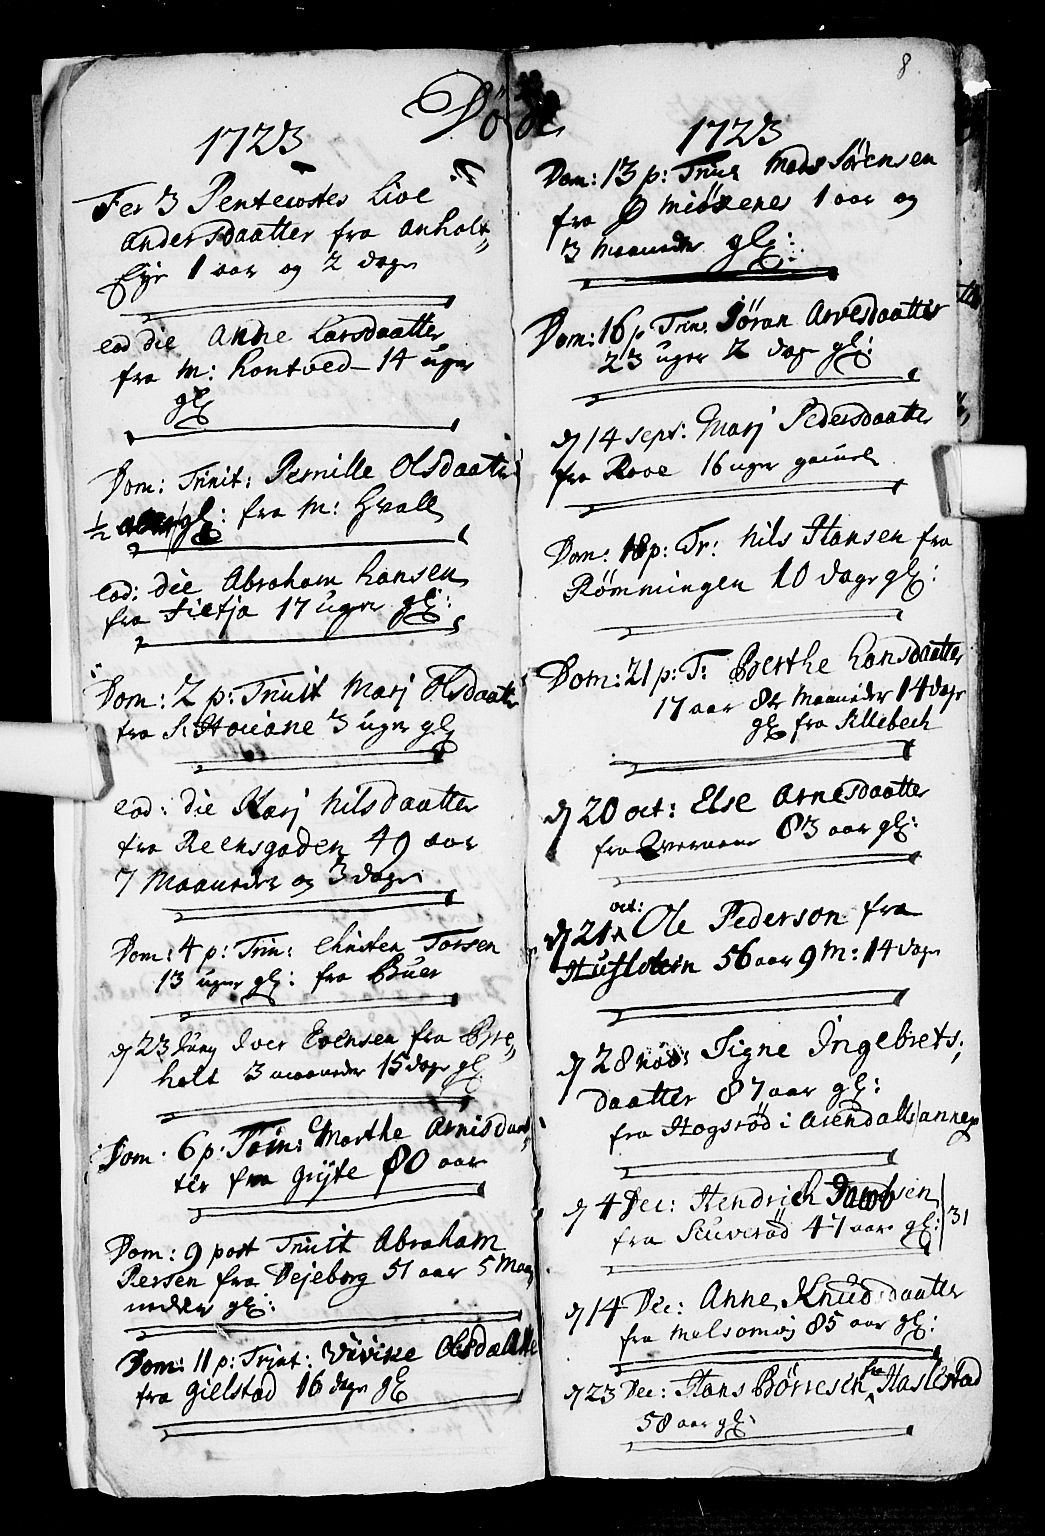 8
Døde
1723
Fer 3 Pentecostes Live
Andersdaatter fra Anholt„
Eye 1 aar og 2 dage
eod die Anne Larsdaatter
fra M: Hontved 14 uger
gl
Dom: Trinit: Pernille Olsdaatter
1/2 aar gl: fra M: Hvall
eod: die Abraham Hansen
fra Tietja 17 uger gl:
Dom: 2 p: Trinit Marj Olsdaatter
fra S: Stouane 3 uger gl
eod: die Karj Nilsdaatter
fra Reensgaden 49 aar
7 Maaneder og 3 dage
Dom: 4 p: Trin: Christen Torsen
13 uger gl: fra Buer
d 23 Juny Iver Evensen fra Bre„
holt 3 maaneder 15 dage gl
Dom. 6 p: Trin: Marthe Arnisdaat„
ter fra Gryte 80 aar
Dom: 9 post Trinit Abraham
Persen fra Vejeborg 51 aar 5 Maa„
neder gl:
Dom: 11 p: Trinit: Vivike Olsdaatte
fra Gielstad 16 dage gl
1723
Dom: 13 p: Trin Mads Sørensen
fra Ø Miøxenes 1 aar og
3 Maaneder gl:
Dom: 16 p Trin: Jøran Arvesdaatter
23 uger 2 dage gl:
d 14 sept: Marj Pedersdaatter
fra Rove 16 uger gammel
Dom: 18 p: Tr: Nils Hansen fra
Rømmingen 10 dage gl:
Dom: 21 p: T: Berthe Hansdaatter
17 aar 8 Maaneder 14 dage
gl fra Sillebech
d 20 oct: Else Arnesdaatter
fra Qvernene 83 aar gl:
d 21 oct: Ole Pederson fra
Huflstein 56 aar 9 M: 14 dage
d 28 Nov: Signe Ingebrets„
daatter 87 aar gl:
fra Hogsrød i Arendalls annex
d 4 Dec: Hendrich Jacobsen
fra Siuverød 47 aar gl: 31
d 14 Dec: Anne Knudsdaatter
fra Melsomøj 85 aar gl:
d 23 Dec: Hans Børresen fra Haslestad
58 aar gl: